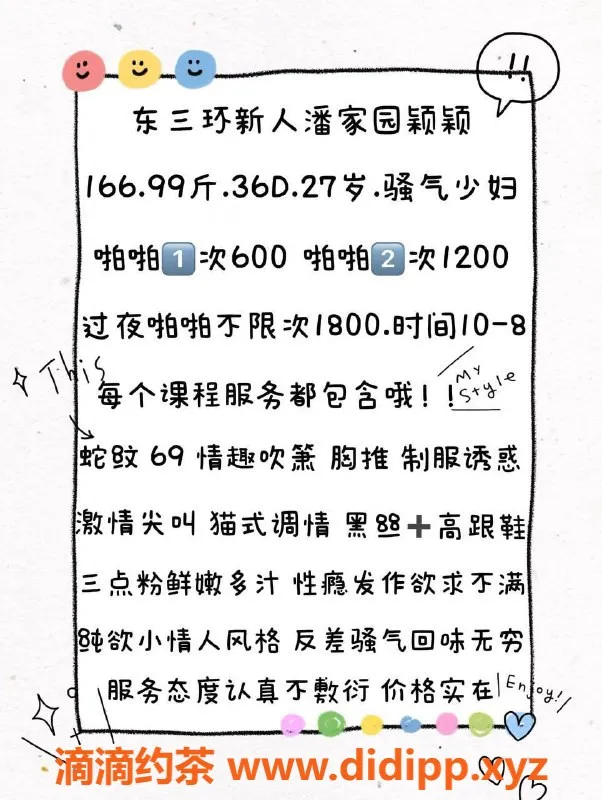 !!
东三环新人潘家园颖颖
166.99斤.36D.27岁.骚气少妇
啪啪1️⃣次600 啪啪2️⃣次1200
过夜啪啪不限次1800.时间10-8
This
每个课程服务都包含哦！！
My Style
蛇纹 69 情趣吹箫 胸推 制服诱惑
激情尖叫 猫式调情 黑丝➕高跟鞋
三点粉鲜嫩多汁 性瘾发作欲求不满
纯欲小情人风格 反差骚气回味无穷
服务态度认真不敷衍 价格实在
Enjoy!
滴滴约茶 www.didipp.xyz